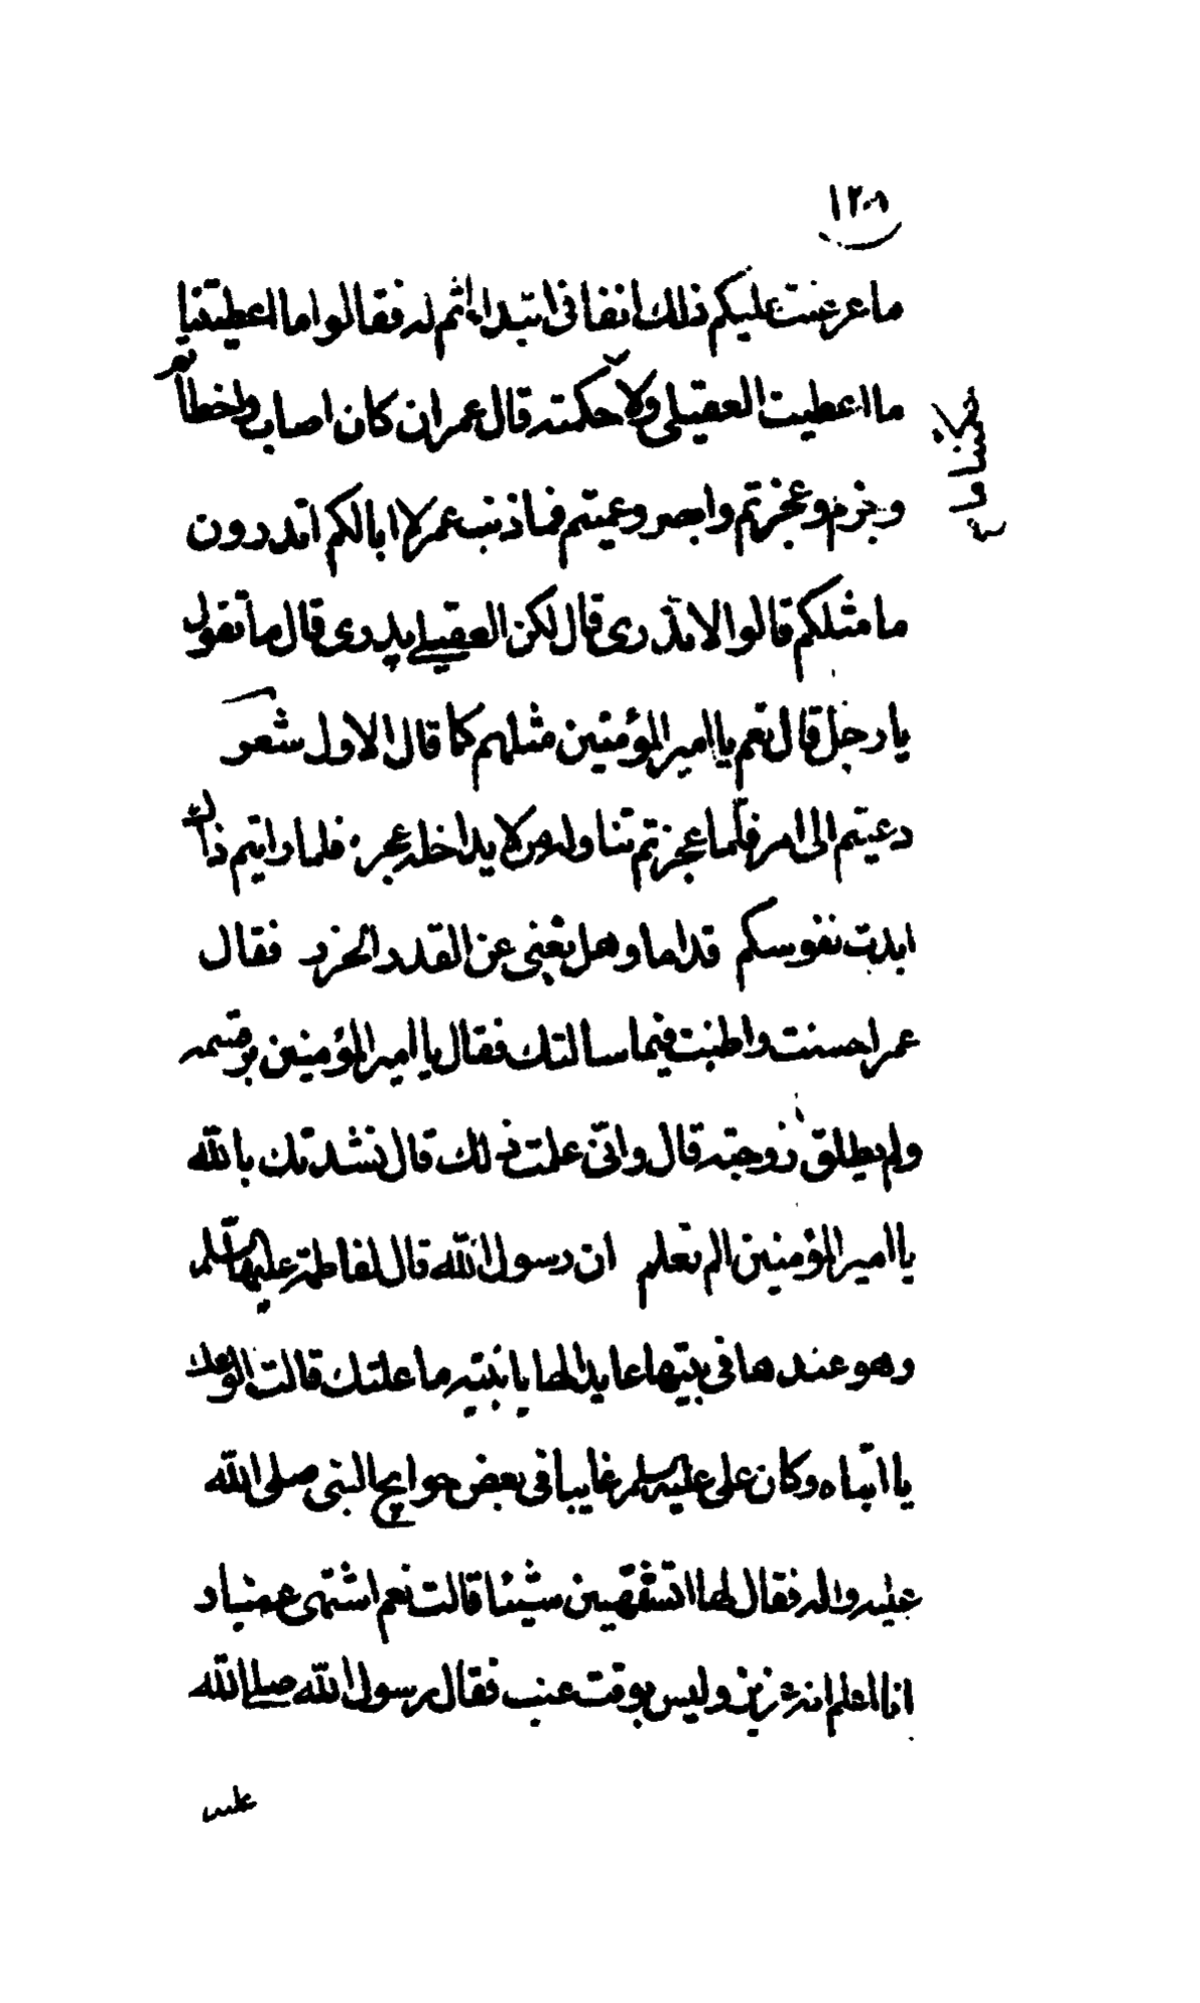 ١٢٠٨
ما عرضت عليكم ذلك انفا فى ابتداء اثم له فقالوا ما اعطيتنا
ما اعطيت العقيلى ولا حكمته قال عمران كان اصاب واخطأتم
وجزم وعجزتم وابصر وعميتم فما ذنب عمر لا ابا لكم اتدرون
ما مثلكم قالوا لا ندرى قال لكن العقيلى يدرى قال ما تقول
يا رجل قال نعم يا امير المؤمنين مثلهم كما قال الاول شعر
دعيتم الى امر فلما عجزتم تناوله من لا يداخله عجز فلما رايتم ذاك
ابدت نفوسكم نداما وهل يغنى عن القدر الحزر فقال
عمر احسنت واطنبت فيما سالتك فقال يا امير المؤمنين بر قسمه
ولم يطلق زوجته قال وانى علمت ذلك قال نشدتك بالله
يا امير المؤمنين الم تعلم ان رسول الله قال لفاطمة عليها السلم
وهو عندها فى بيتها عايد لها يا بنية ما علتك قالت الوعك
يا ابتاه وكان على عليه السلم غايبا فى بعض حوايج النبى صلى الله
عليه واله فقال لها اتشتهين شيئا قالت نعم اشتهى عنبا و
انا اعلم انه عزيز وليس بوقت عنب فقال رسول الله صلى الله
عليه